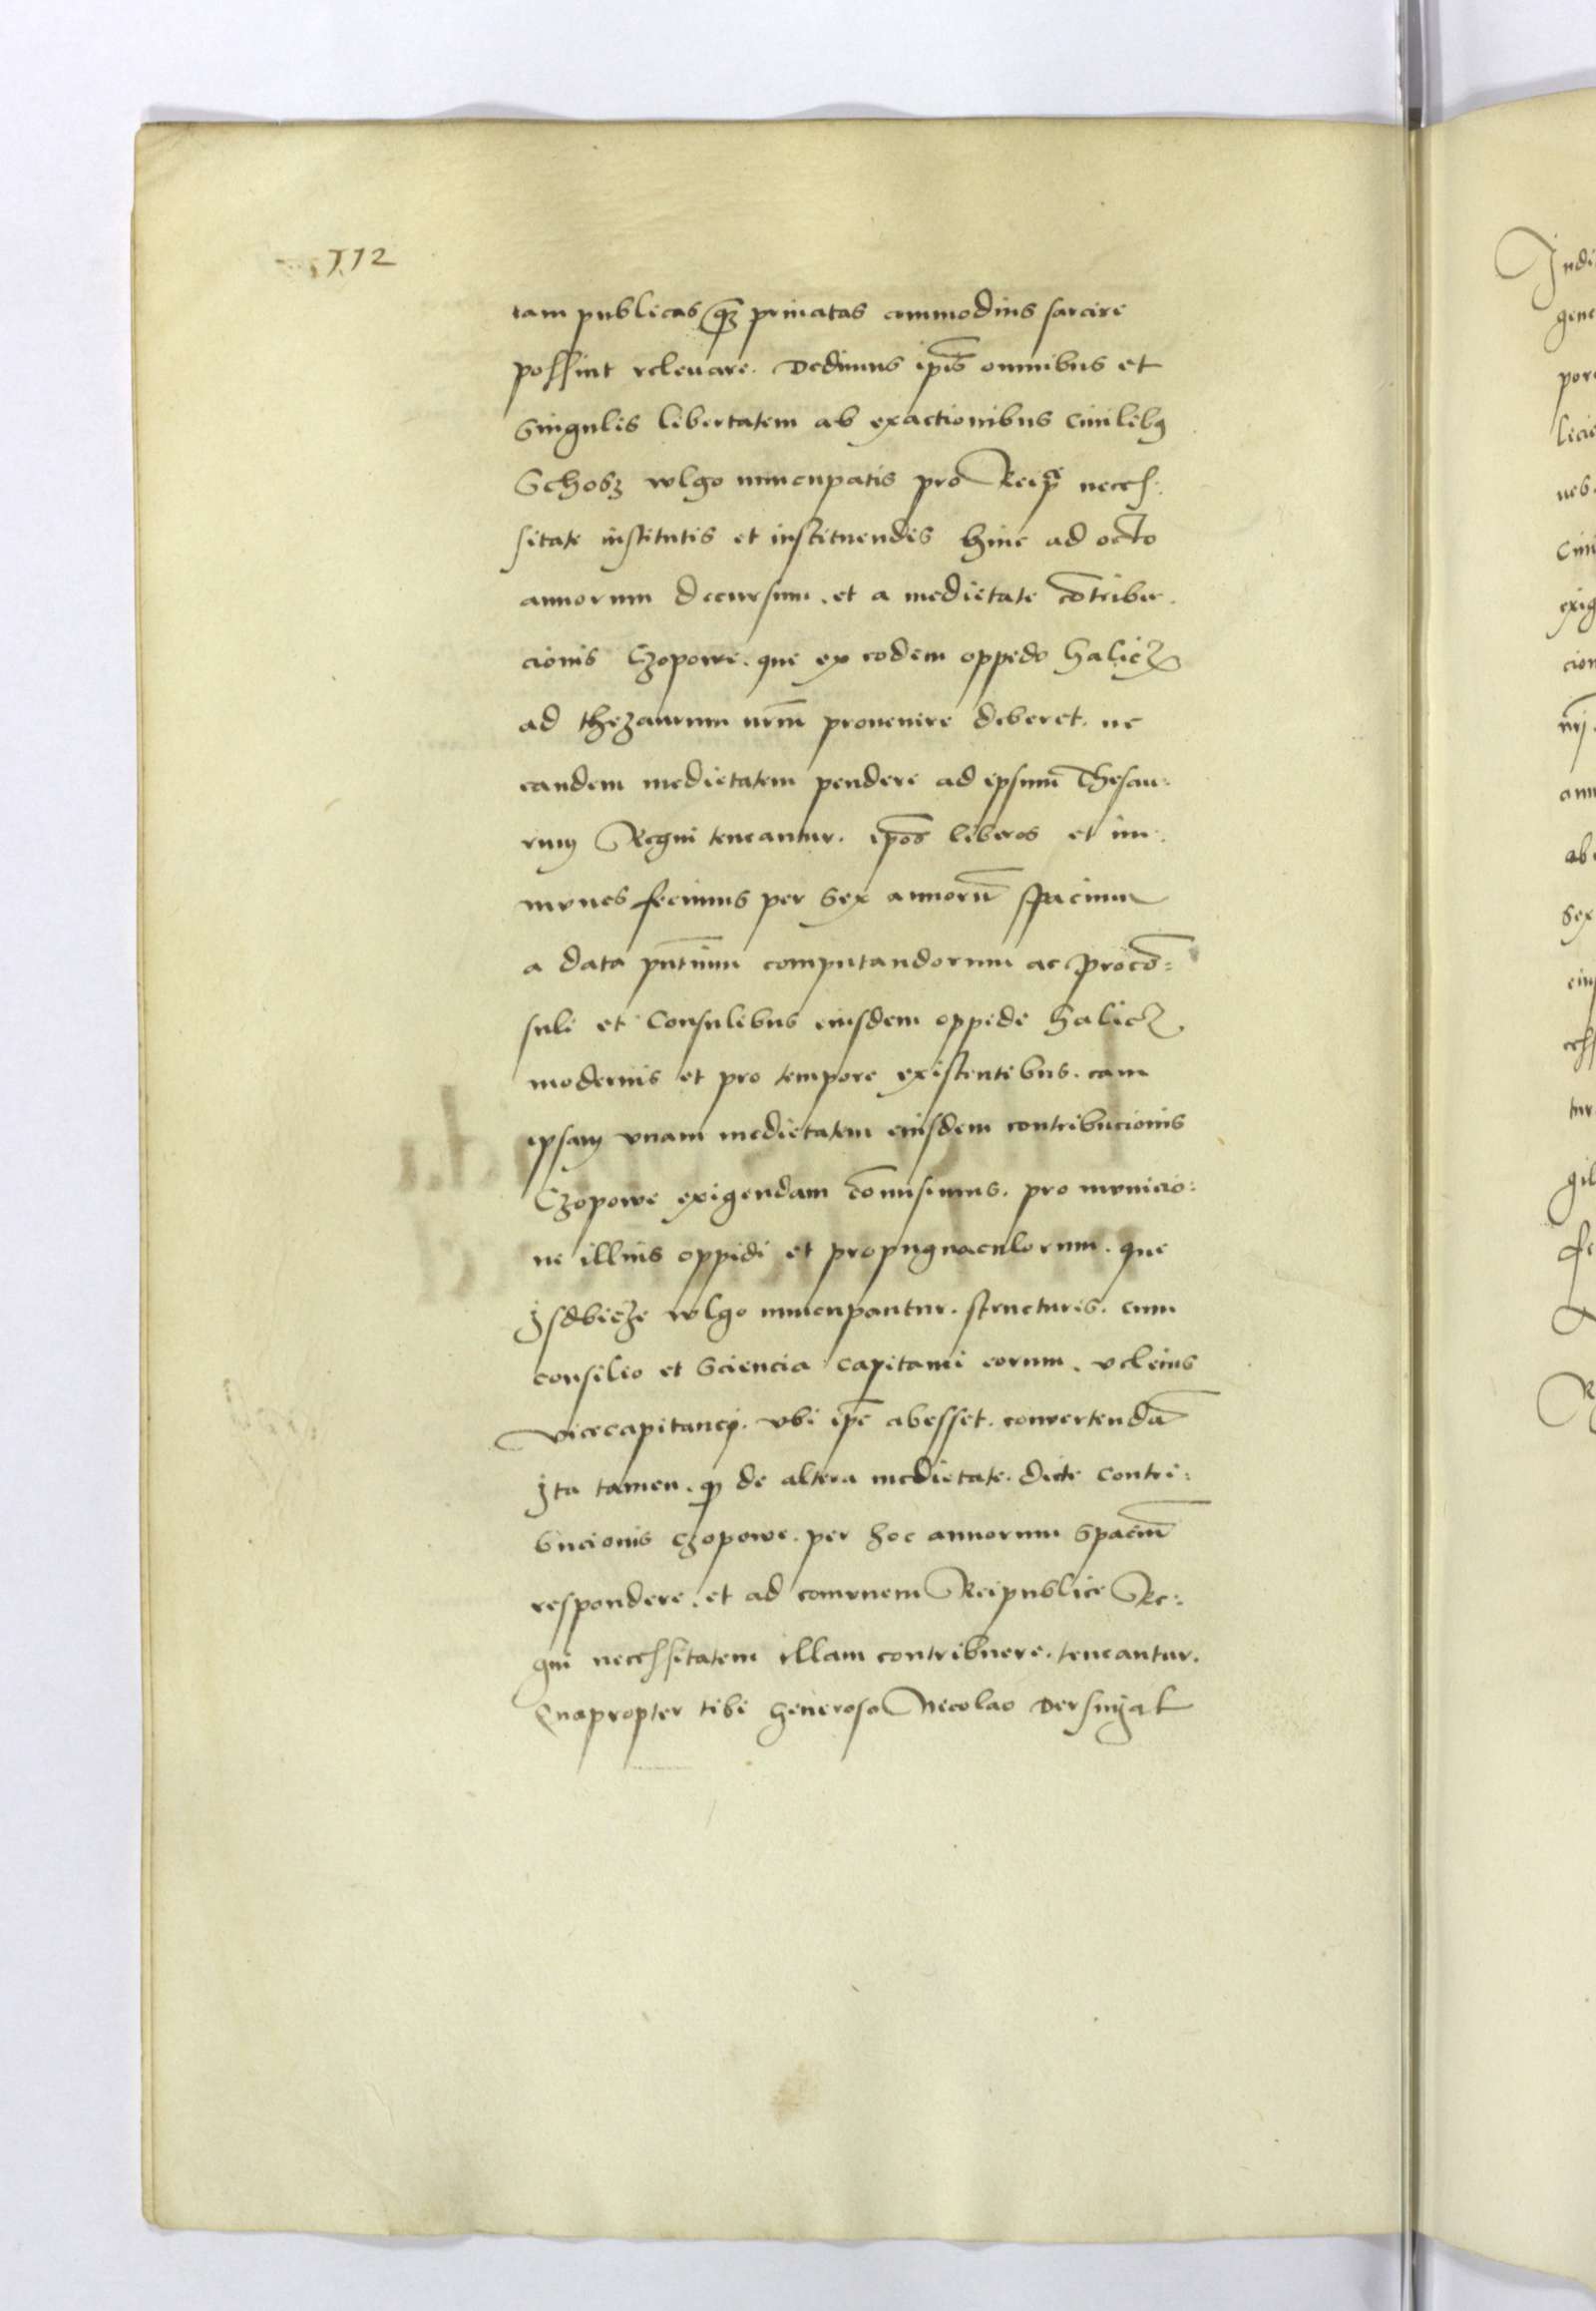 112
tam publicas q̃ꝫ priuatas commodius sarcire
possint releuare. Dedimus ip̃is omnibus et
Singulis libertatem ab exactionibus Ciuilibꝫ
Schosz wlgo nuncupatis pro Reip̃ necess:
sitate institutis et instituendis hinc ad octo
annorum decursum. et a medietate cõtribu
cionis Czopowe. que ex eodem oppido Halicz
ad thezaurum nr̃m prouenire deberet. ne
eandem medietatem pendere ad ipsum Thesau:
rum Regni teneantur. ip̃os liberos et im:
munes fecimus per Sex annorũ spacium
a data pñtium computandorum ac Procõ=
suli et Consulibus eiusdem oppidi Halicz
modernis et pro tempore existentibus. eam
ipsam vnam medietatem eiusdem contribucionis
Czopowe exigendam cõmisimus. pro municio:
ne illius oppidi et propugnaculorum. que
Isdbicze wlgo nuncupantur. structuris. cum
consilio et Sciencia Capitanei eorum. vel eius
vicecapitanei. vbi ip̃e abesset. conuertendã
Ita tamen. ꝙ de altera medietate. dicte Contri:
bucionis Czopowe. per hoc annorum Spaciũ
respondere. et ad comunem Reipublice Re:
gni necessitatem illam contribuere. teneantur.
Quapropter tibi Generoso Nicolao
Indi
gene
por
licie
neb
Ciui
exig
cion
nrj
ann
ab
Sex
eius
tur
gil
fe